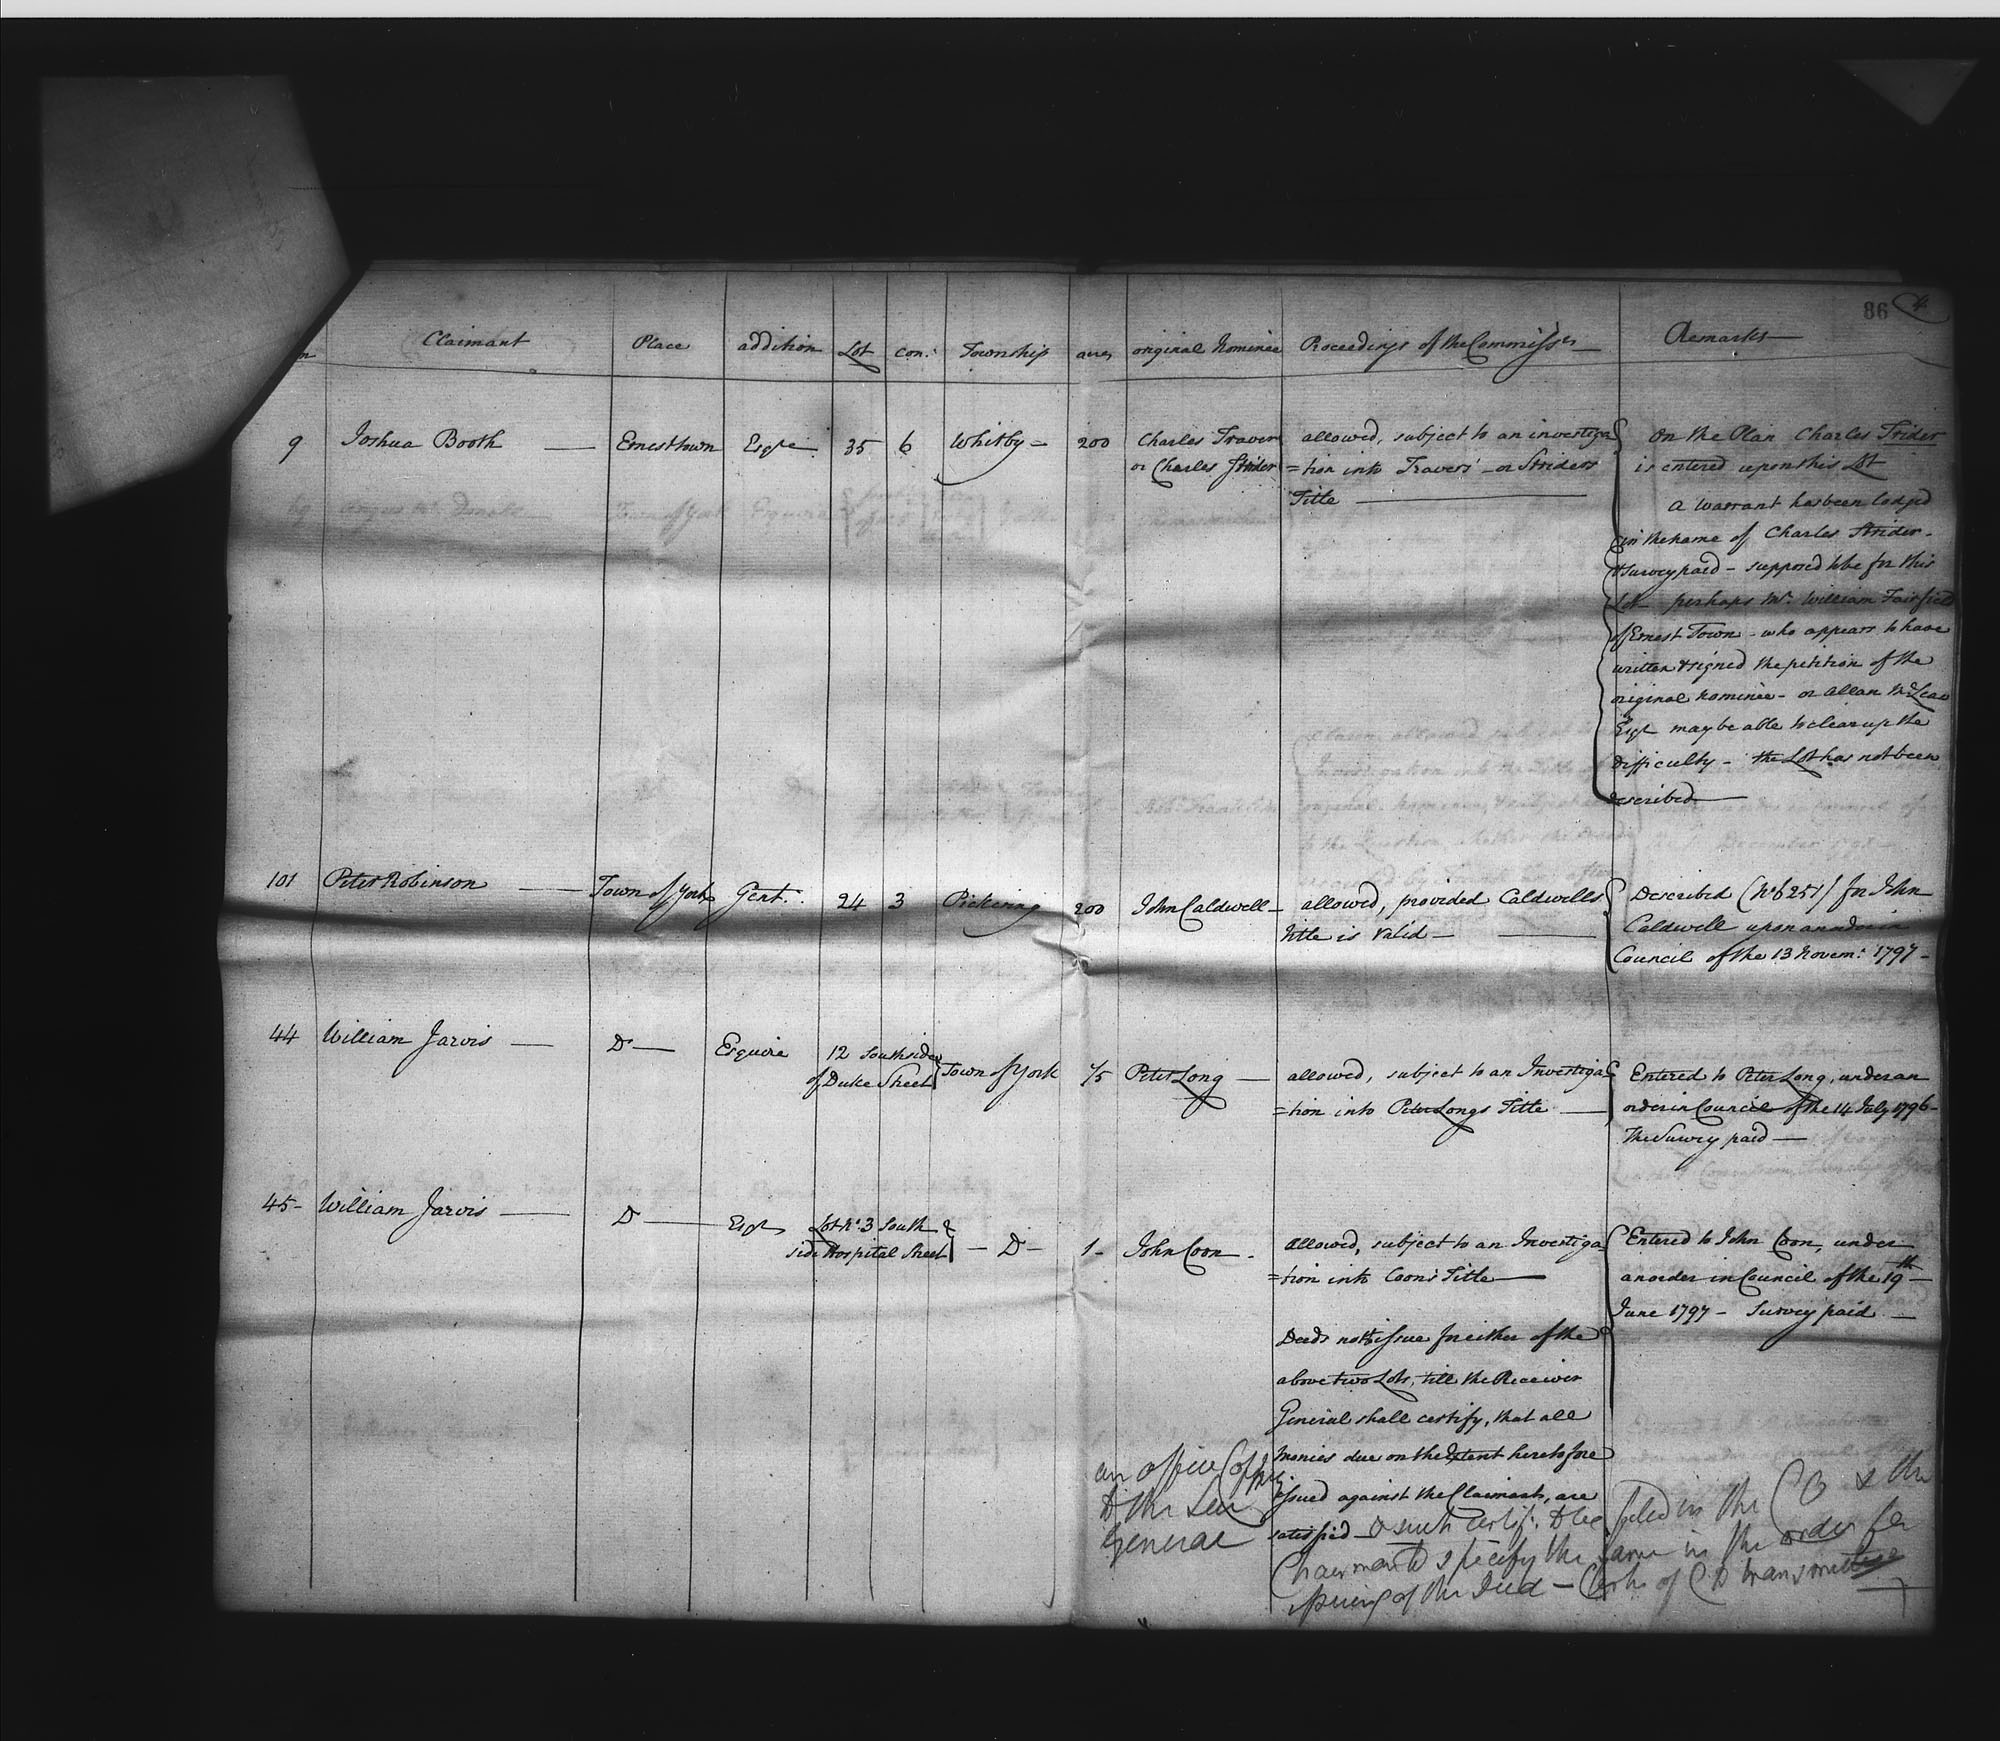 86 4
Claimant Place addition Lot con: Township acres original Nominee Proceedings of the Commissrs Remarks
9 Joshua Booth Ernesttown Esqre 35 6 Whitby 200
Charles Traver
or Charles Strider
allowed, subject to an investiga
=tion into Travers' or Striders
Title
On the Plan Charles Strider
is entered upon this Lot
A warrant has been lodged
in the name of Charles Strider
& Survey paid - supposed to be for this
Lot perhaps Mr. William Fairfield
of Ernest Town - who appears to have
written & signed the petition of the
original Nominee - or Allan McLean
Esqr may be able to clear up the
difficulty - the Lot has not been
described
101 Peter Robinson Town of York Gent. 24 3 Pickering 200 John Caldwell
allowed, provided Caldwells
title is valid
Described (No 6251) for John
Caldwell upon an order in
Council of the 13 Novem: 1797
44 William Jarvis Do Esquire
12 South side
of Duke Street
Town of York 1/5 Peter Long
allowed, subject to an Investiga
=tion into Peter Longs Title
Entered to Peter Long, under an
order in Council of the 14 July 1796
The Survey paid
45 William Jarvis Do Esqr
Lot No. 3 South
side Hospital Street
Do 1 John Coon
Allowed, subject to an Investiga
=tion into Coon's Title
Entered to John Coon, under
an order in Council of the 19th
June 1797 - Survey paid
Deeds not to issue for either of the
above two Lots, till the Receiver
General shall certify, that all
monies due on the Extent heretofore
issued against the Claimant, are
satisfied - & such certife. to be filed in the CO & the
Chairman to specify the same in the order for
issuing of the Deed - Clerk of C to transmit
an office Copy
to the
General